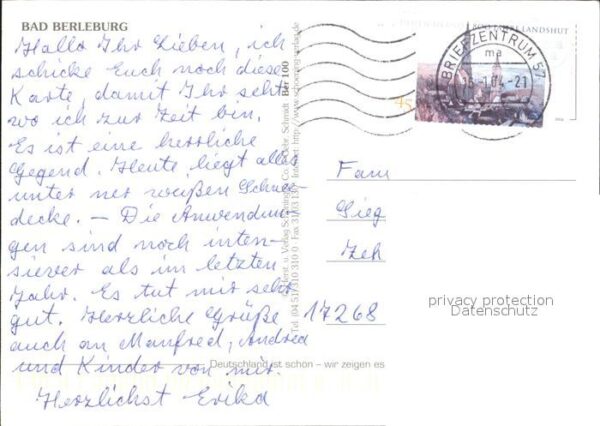 BAD BERLEBURG
Hallo Ihr Lieben, ich
schicke Euch noch diese
Karte, damit Ihr seht
wo ich zur Zeit bin.
Es ist eine herrliche
Gegend. Heute liegt alles
unter ner weißen Schnee-
decke. – Die Anwendun-
gen sind noch inten-
siever als im letzten
Jahr. Es tut mir sehr
gut. Herzliche Grüße
auch an Manfred, Andrea
und Kinder von mir.
Herzlichst Erika
Ber 100
Deutschland ist schön – wir zeigen es
800 JAHRE LANDSHUT
45
BRIEFZENTRUM 57
ma
.1.04-21
Fam
Sieg
Zeh
17268
privacy protection
Datenschutz